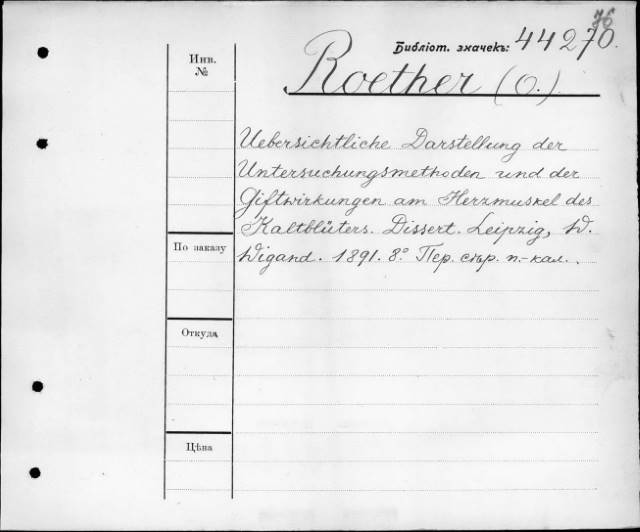 76
Библіот. значекъ: 44270.
Инв.
№
Roether (O.)
Uebersichtliche Darstellung der
Untersuchungsmethoden und der
Giftwirkungen am Herzmuskel des
Kaltblüters. Dissert. Leipzig, W.
Wigand. 1891. 8.° Пер. стр. п.-кал.
По заказу
Откуда
Цѣна